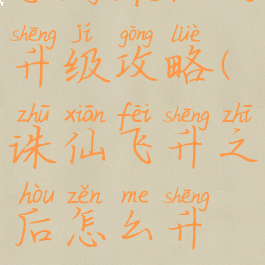 shēng jí gōng lüè
升级攻略(
zhū xiān fēi shēng zhī
诛仙飞升之
hòu zěn me shēng
后怎么升